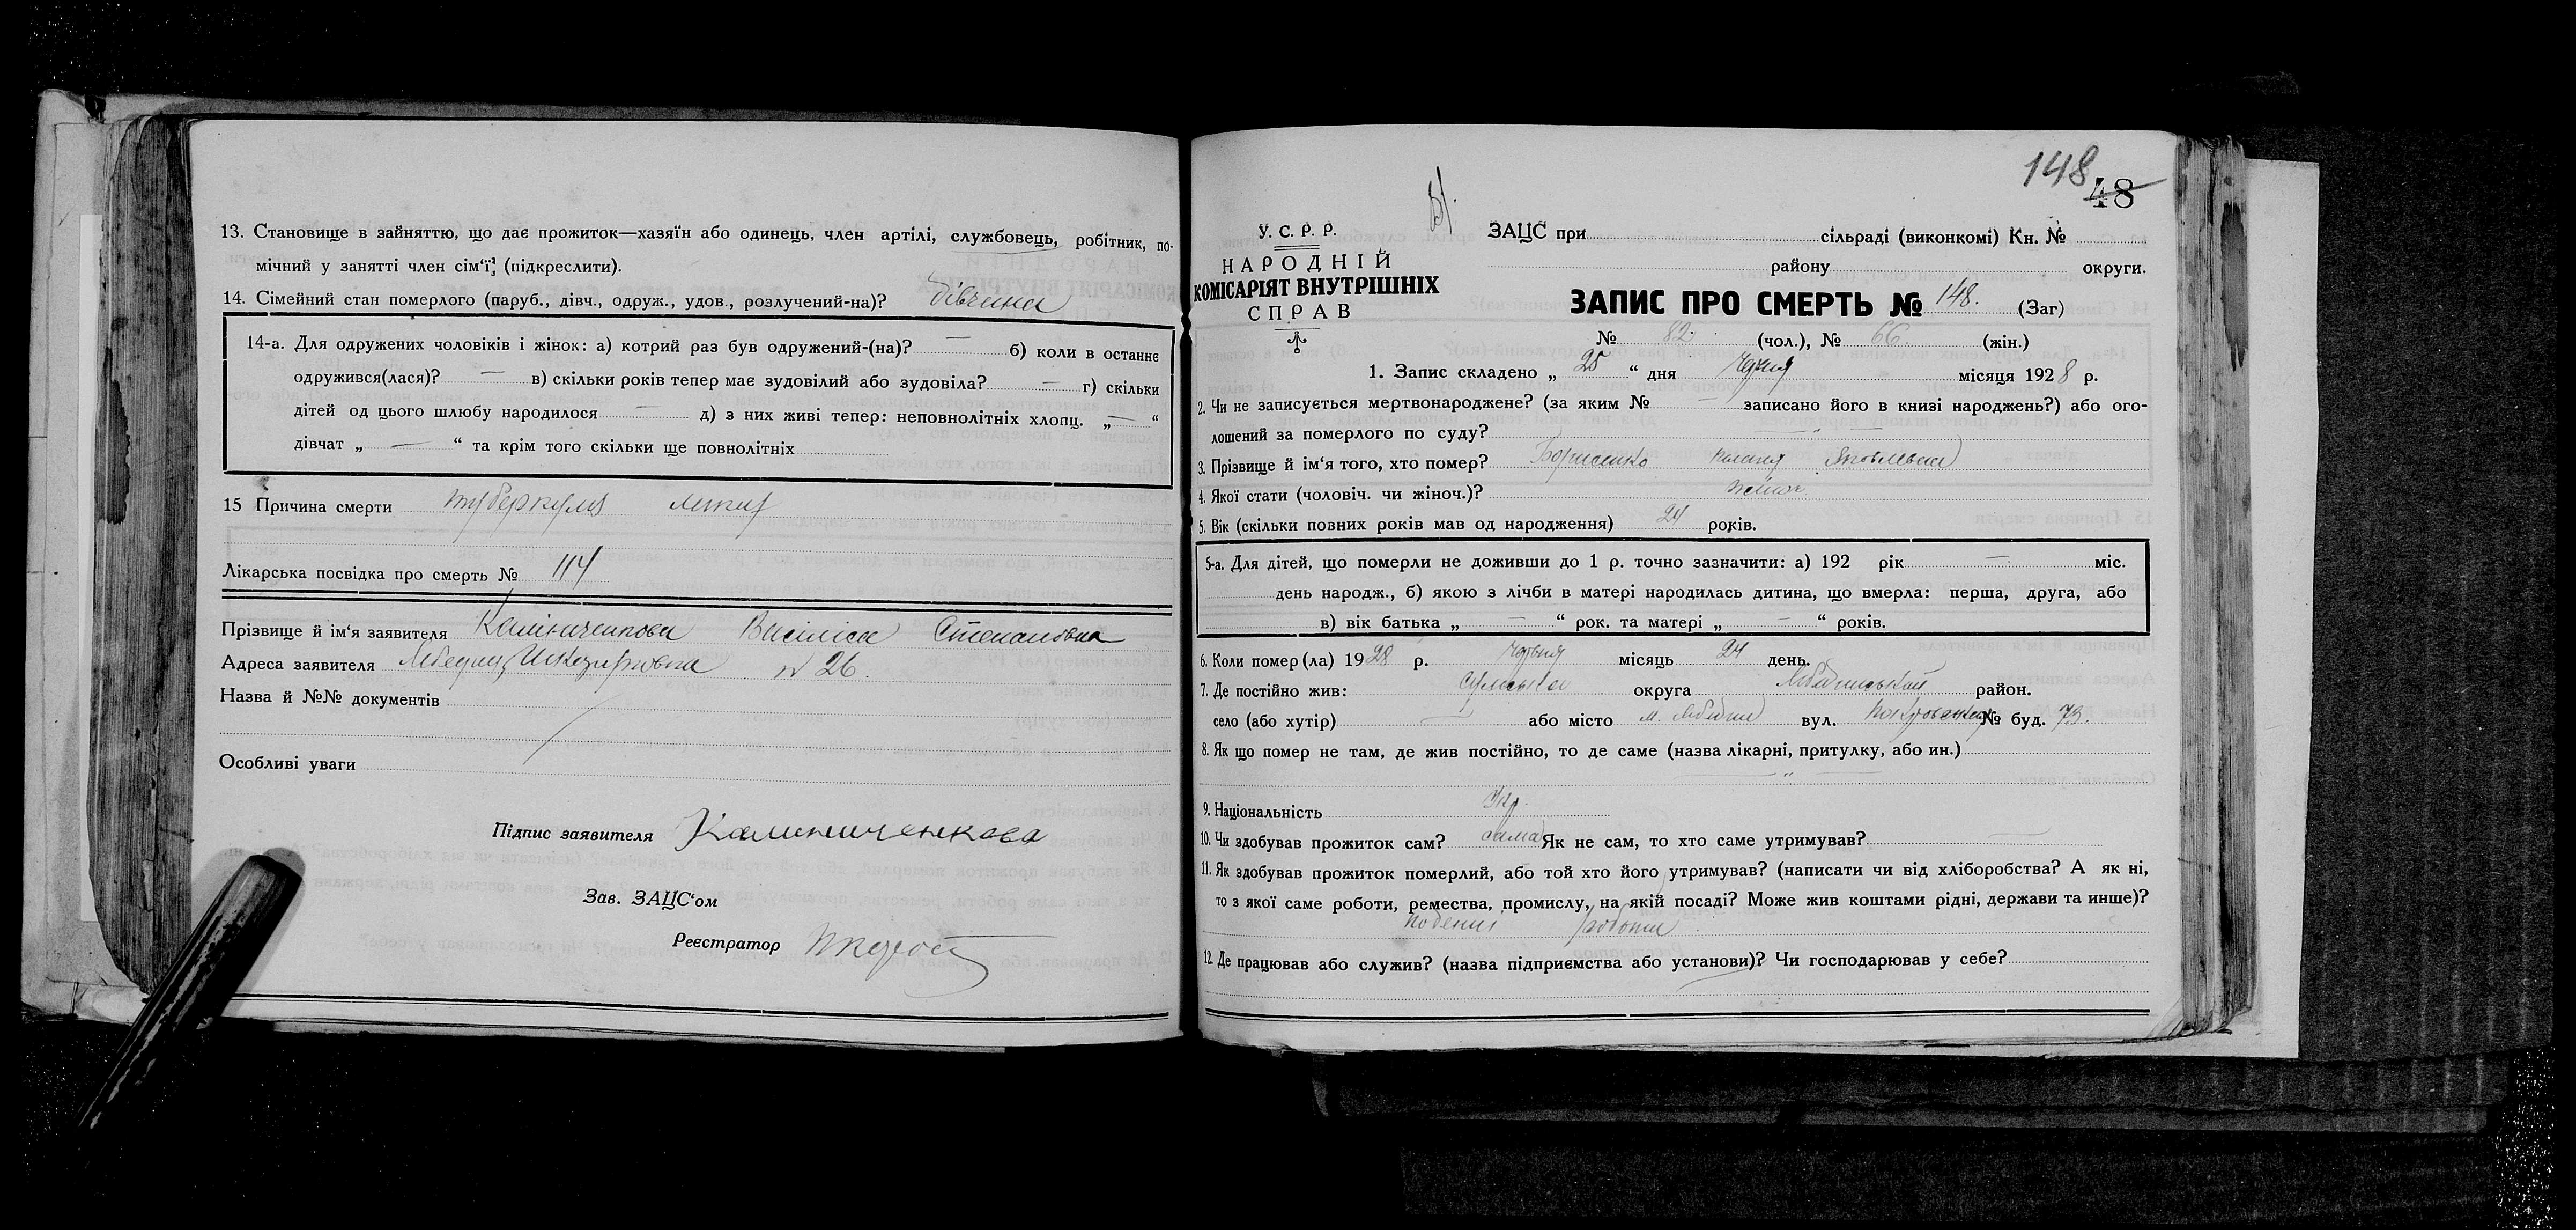 13. Становище в зайняттю, що дає прожиток—хазяїн або одинець, член артілі, службовець, робітник, по-
мічний у занятті член сім‘ї; (підкреслити).
14. Сімейний стан померлого (паруб., дівч., одруж., удов., розлучений-на)? дівчина
14-а. Для одружених чоловіків і жінок: а) котрий раз був одружений-(на)? — б) коли в останнє
одружився(лася)? — в) скільки років тепер має зудовілий або зудовіла? — г) скільки
дітей од цього шлюбу народилося — д) з них живі тепер: неповнолітніх хлопц. „ — “
дівчат „ — “ та крім того скільки ще повнолітніх
15 Причина смерти туберкульоз легких
Лікарська посвідка про смерть № 114
Прізвище й ім‘я заявителя Калініченкова Василіса Степановна
Адреса заявителя Лебедин, № 26.
Назва й №№ документів
Особливі уваги
Підпис заявителя Калиниченкова
Зав. ЗАЦС‘ом
Реєстратор
148
48
У. С. Р. Р.
НАРОДНІЙ
КОМІСАРІЯТ ВНУТРІШНІХ
СПРАВ
ЗАЦС при сільраді (виконкомі) Кн. №
району округи.
ЗАПИС ПРО СМЕРТЬ № 148. (Заг)
№ 82. (чол.), № 66. (жін.)
1. Запис складено „ 25 “ дня червня місяця 1928 р.
2. Чи не записується мертвонароджене? (за яким № — записано його в книзі народжень?) або ого-
лошений за померлого по суду? — „ —
3. Прізвище й ім‘я того, хто помер? Борисенко Яковлевна
4. Якої стати (чоловіч. чи жіноч.)? жіноч
5. Вік (скільки повних років мав од народження) 24 років.
5-а. Для дітей, що померли не доживши до 1 р. точно зазначити: а) 192 рік — міс.
день народж., б) якою з лічби в матері народилась дитина, що вмерла: перша, друга, або
в) вік батька „ — “ рок. та матері „ — “ років.
6. Коли помер (ла) 1928 р. червня місяць 24 день.
7. Де постійно жив: Сумська округа Лебединський район.
село (або хутір) — або місто м. Лебедин вул. Покровська № буд. 73.
8. Як що помер не там, де жив постійно, то де саме (назва лікарні, притулку, або ин.)
— „ —
9. Національність Укр.
10. Чи здобував прожиток сам? сама Як не сам, то хто саме утримував? —
11. Як здобував прожиток померлий, або той хто його утримував? (написати чи від хліборобства? А як ні,
то з якої саме роботи, ремества, промислу, на якій посаді? Може жив коштами рідні, держави та инше)?
поденні роботи.
12. Де працював або служив? (назва підприємства або установи)? Чи господарював у себе?